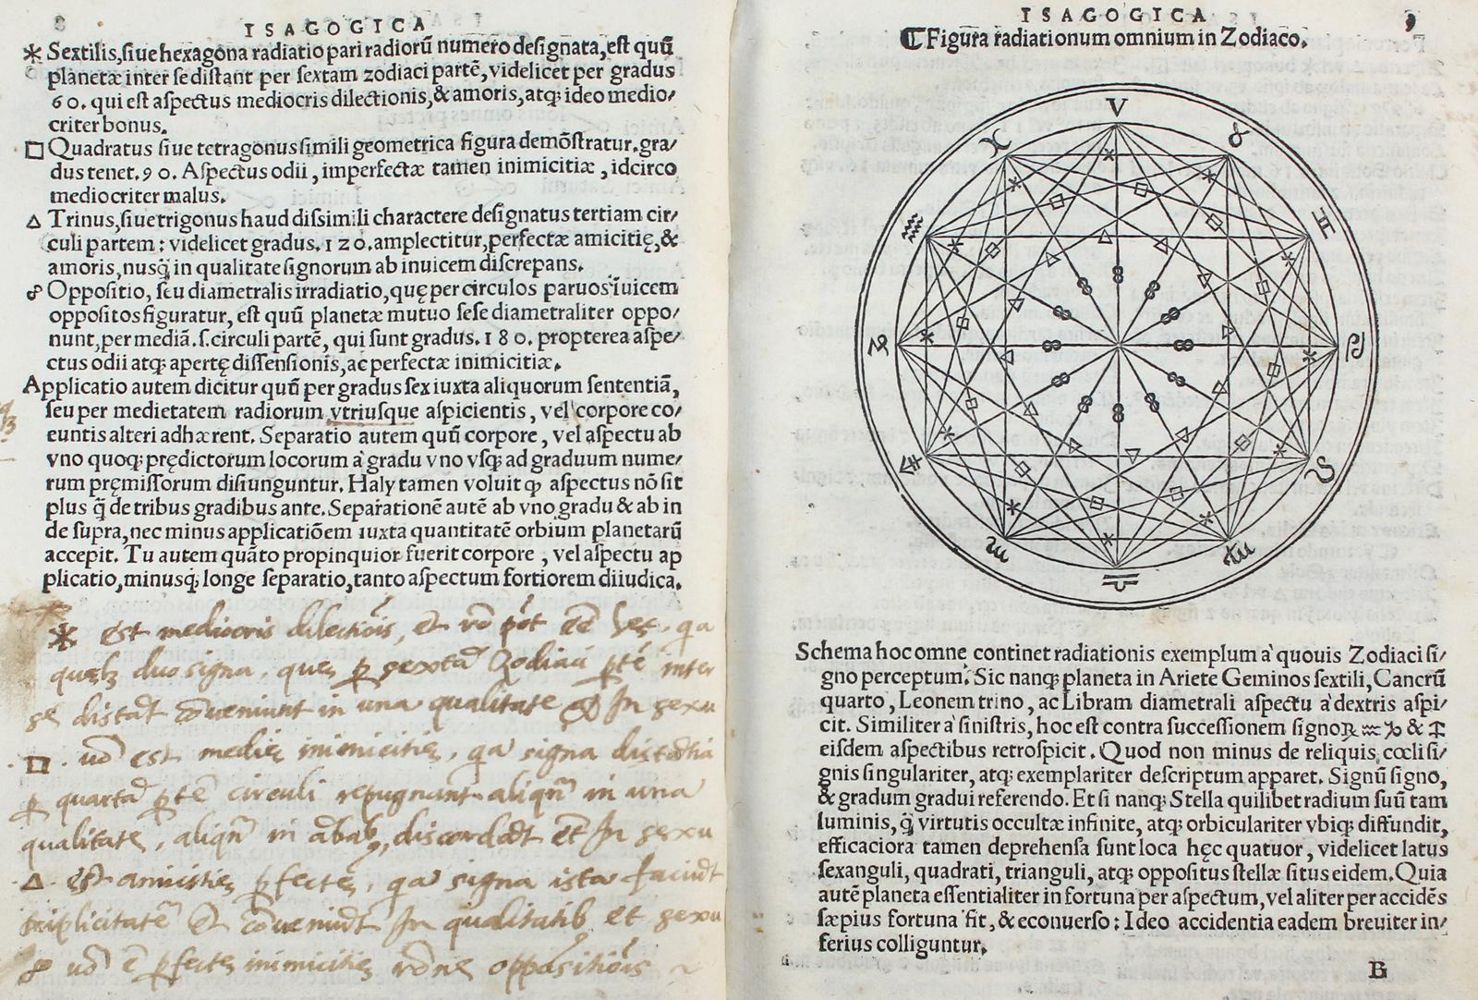 ISAGOGICA
* Sextilis, siue hexagona radiatio pari radiorũ numero designata, est quũ
planetæ inter se distant per sextam zodiaci partẽ, videlicet per gradus
60. qui est aspectus mediocris dilectionis, & amoris, atq; ideo medio/
criter bonus.
□ Quadratus siue tetragonus simili geometrica figura demõstratur, gra/
dus tenet. 90. Aspectus odii, imperfectæ tamen inimicitiæ, idcirco
mediocriter malus.
△ Trinus, siue trigonus haud dissimili charactere designatus tertiam cir/
culi partem: videlicet gradus. 120. amplectitur, perfectæ amicitię, &
amoris, nusq̃ in qualitate signorum ab inuicem discrepans.
☍ Oppositio, seu diametralis irradiatio, quę per circulos paruos ĩuicem
oppositos figuratur, est quũ planetæ mutuo sese diametraliter oppo/
nunt, per mediã. s. circuli partẽ, qui sunt gradus. 180. propterea aspe/
ctus odii atq; apertę dissensionis, ac perfectæ inimicitiæ.
Applicatio autem dicitur quũ per gradus sex iuxta aliquorum sententiã,
seu per medietatem radiorum vtriusque aspicientis, vel corpore co/
euntis alteri adhærent. Separatio autem quũ corpore, vel aspectu ab
vno quoq; prędictorum locorum à gradu vno vsq; ad graduum nume/
rum pręmissorum disiunguntur. Haly tamen voluit ꝙ aspectus nõ sit
plus q̃ de tribus gradibus ante. Separationẽ autẽ ab vno gradu & ab in
de supra, nec minus applicatiõem iuxta quantitatẽ orbium planetarũ
accepit. Tu autem quãto propinquior fuerit corpore, vel aspectu ap
plicatio, minusq; longe separatio, tanto aspectum fortiorem diiudica.
* est mediocris dilectiõis, et
duo signa, que sexta Zodiaci inter
se distãt cõueniunt in una qualitate et In sexu
□ uõ est medie inimicitie, qa signa distãtia
quartã ptẽ circuli repugnant aliqñ in una
qualitate, aliqñ in discordãt et In sexu
△ est amicitie pfecte, qa signa ista faciũt
triplicitatẽ et cõueniũt In qualitatib et sexu
☍ uõ ẽ pfecte inimicitie rõne oppositiõis
ISAGOGICA
9
☾ Figura radiationum omnium in Zodiaco.
♈ ♉ ♊ ♋ ♌ ♍ ♎ ♏ ♐ ♑ ♒ ♓
Schema hoc omne continet radiationis exemplum à quouis Zodiaci si/
gno perceptum. Sic nanq; planeta in Ariete Geminos sextili, Cancrũ
quarto, Leonem trino, ac Libram diametrali aspectu à dextris aspi/
cit. Similiter à sinistris, hoc est contra successionem signoꝝ ♒ ♑ & ♐
eisdem aspectibus retrospicit. Quod non minus de reliquis cœli si/
gnis singulariter, atq; exemplariter descriptum apparet. Signũ signo,
& gradum gradui referendo. Et si nanq; Stella quilibet radium suũ tam
luminis, q̃ virtutis occultæ infinite, atq; orbiculariter vbiq; diffundit,
efficaciora tamen deprehensa sunt loca hęc quatuor, videlicet latus
sexanguli, quadrati, trianguli, atq; oppositus stellæ situs eidem. Quia
autẽ planeta essentialiter in fortuna per aspectum, vel aliter per accidẽs
sæpius fortuna fit, & econuerso: Ideo accidentia eadem breuiter in/
ferius colliguntur.
B